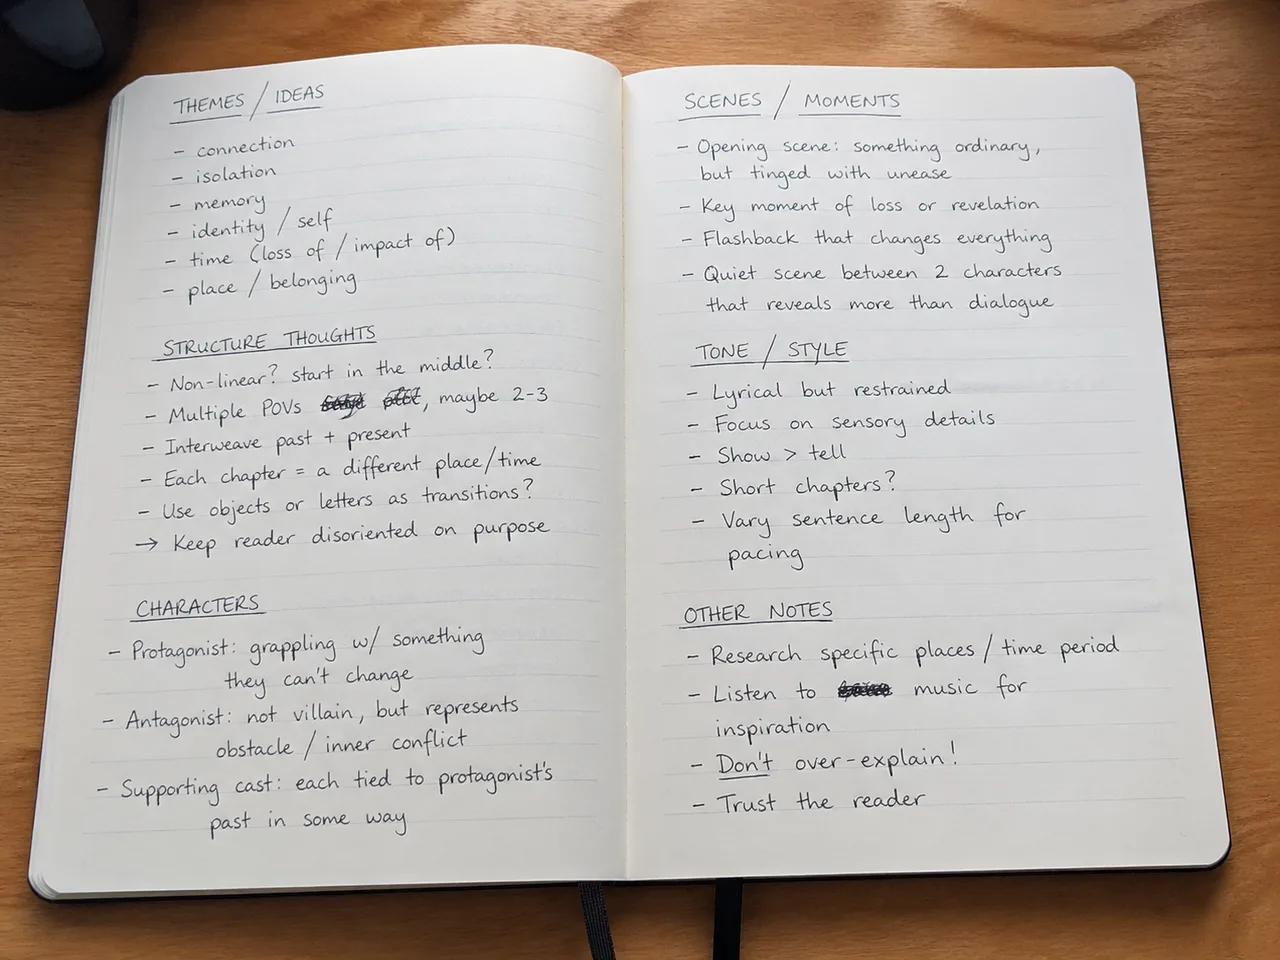 THEMES / IDEAS
- connection
- isolation
- memory
- identity / self
- time (loss of / impact of)
- place / belonging
STRUCTURE THOUGHTS
- Non-linear? start in the middle?
- Multiple POVs , maybe 2-3
- Interweave past + present
- Each chapter = a different place/time
- Use objects or letters as transitions?
→ Keep reader disoriented on purpose
CHARACTERS
- Protagonist: grappling w/ something
they can't change
- Antagonist: not villain, but represents
obstacle / inner conflict
- Supporting cast: each tied to protagonist's
past in some way
SCENES / MOMENTS
- Opening scene: something ordinary,
but tinged with unease
- Key moment of loss or revelation
- Flashback that changes everything
- Quiet scene between 2 characters
that reveals more than dialogue
TONE / STYLE
- Lyrical but restrained
- Focus on sensory details
- Show > tell
- Short chapters?
- Vary sentence length for
pacing
OTHER NOTES
- Research specific places / time period
- Listen to music for
inspiration
- Don't over-explain!
- Trust the reader